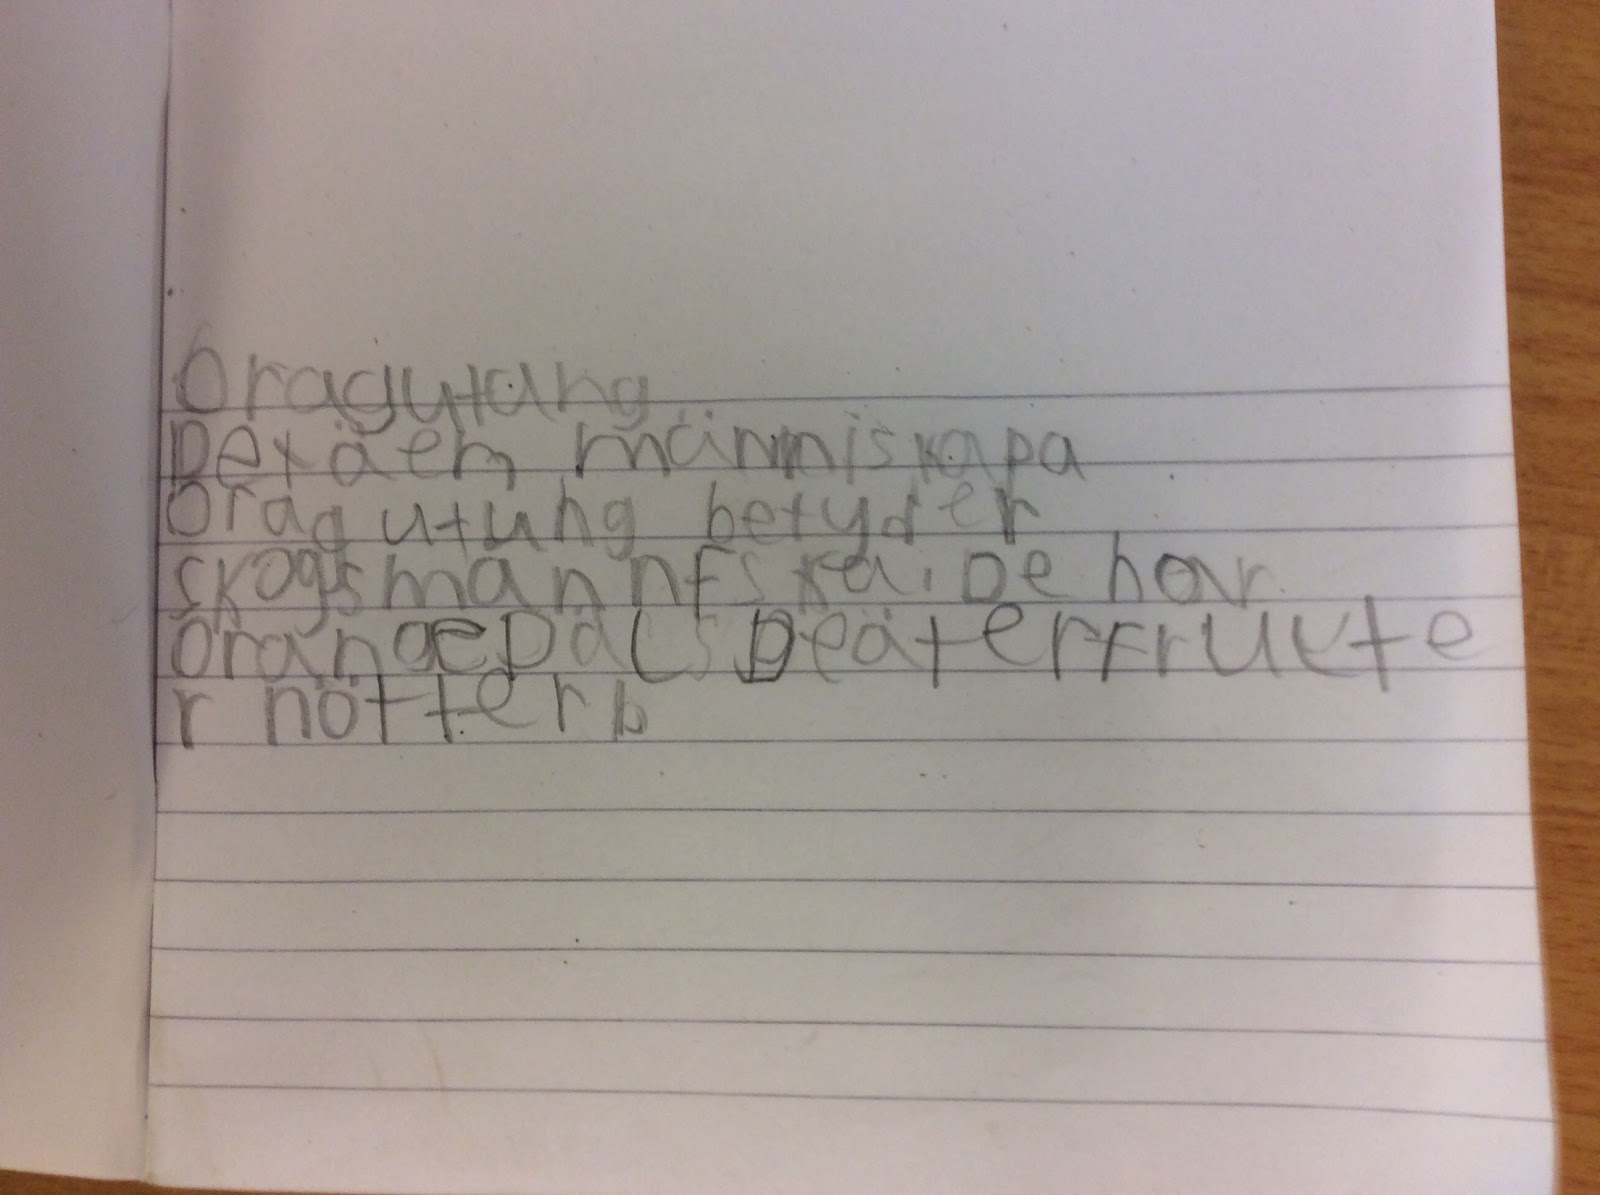 Oragutang
Det äen männmiskapa
Oragutung betyder
skogsmannfska. De har
orangepals Deäterfrukte
r nötter b